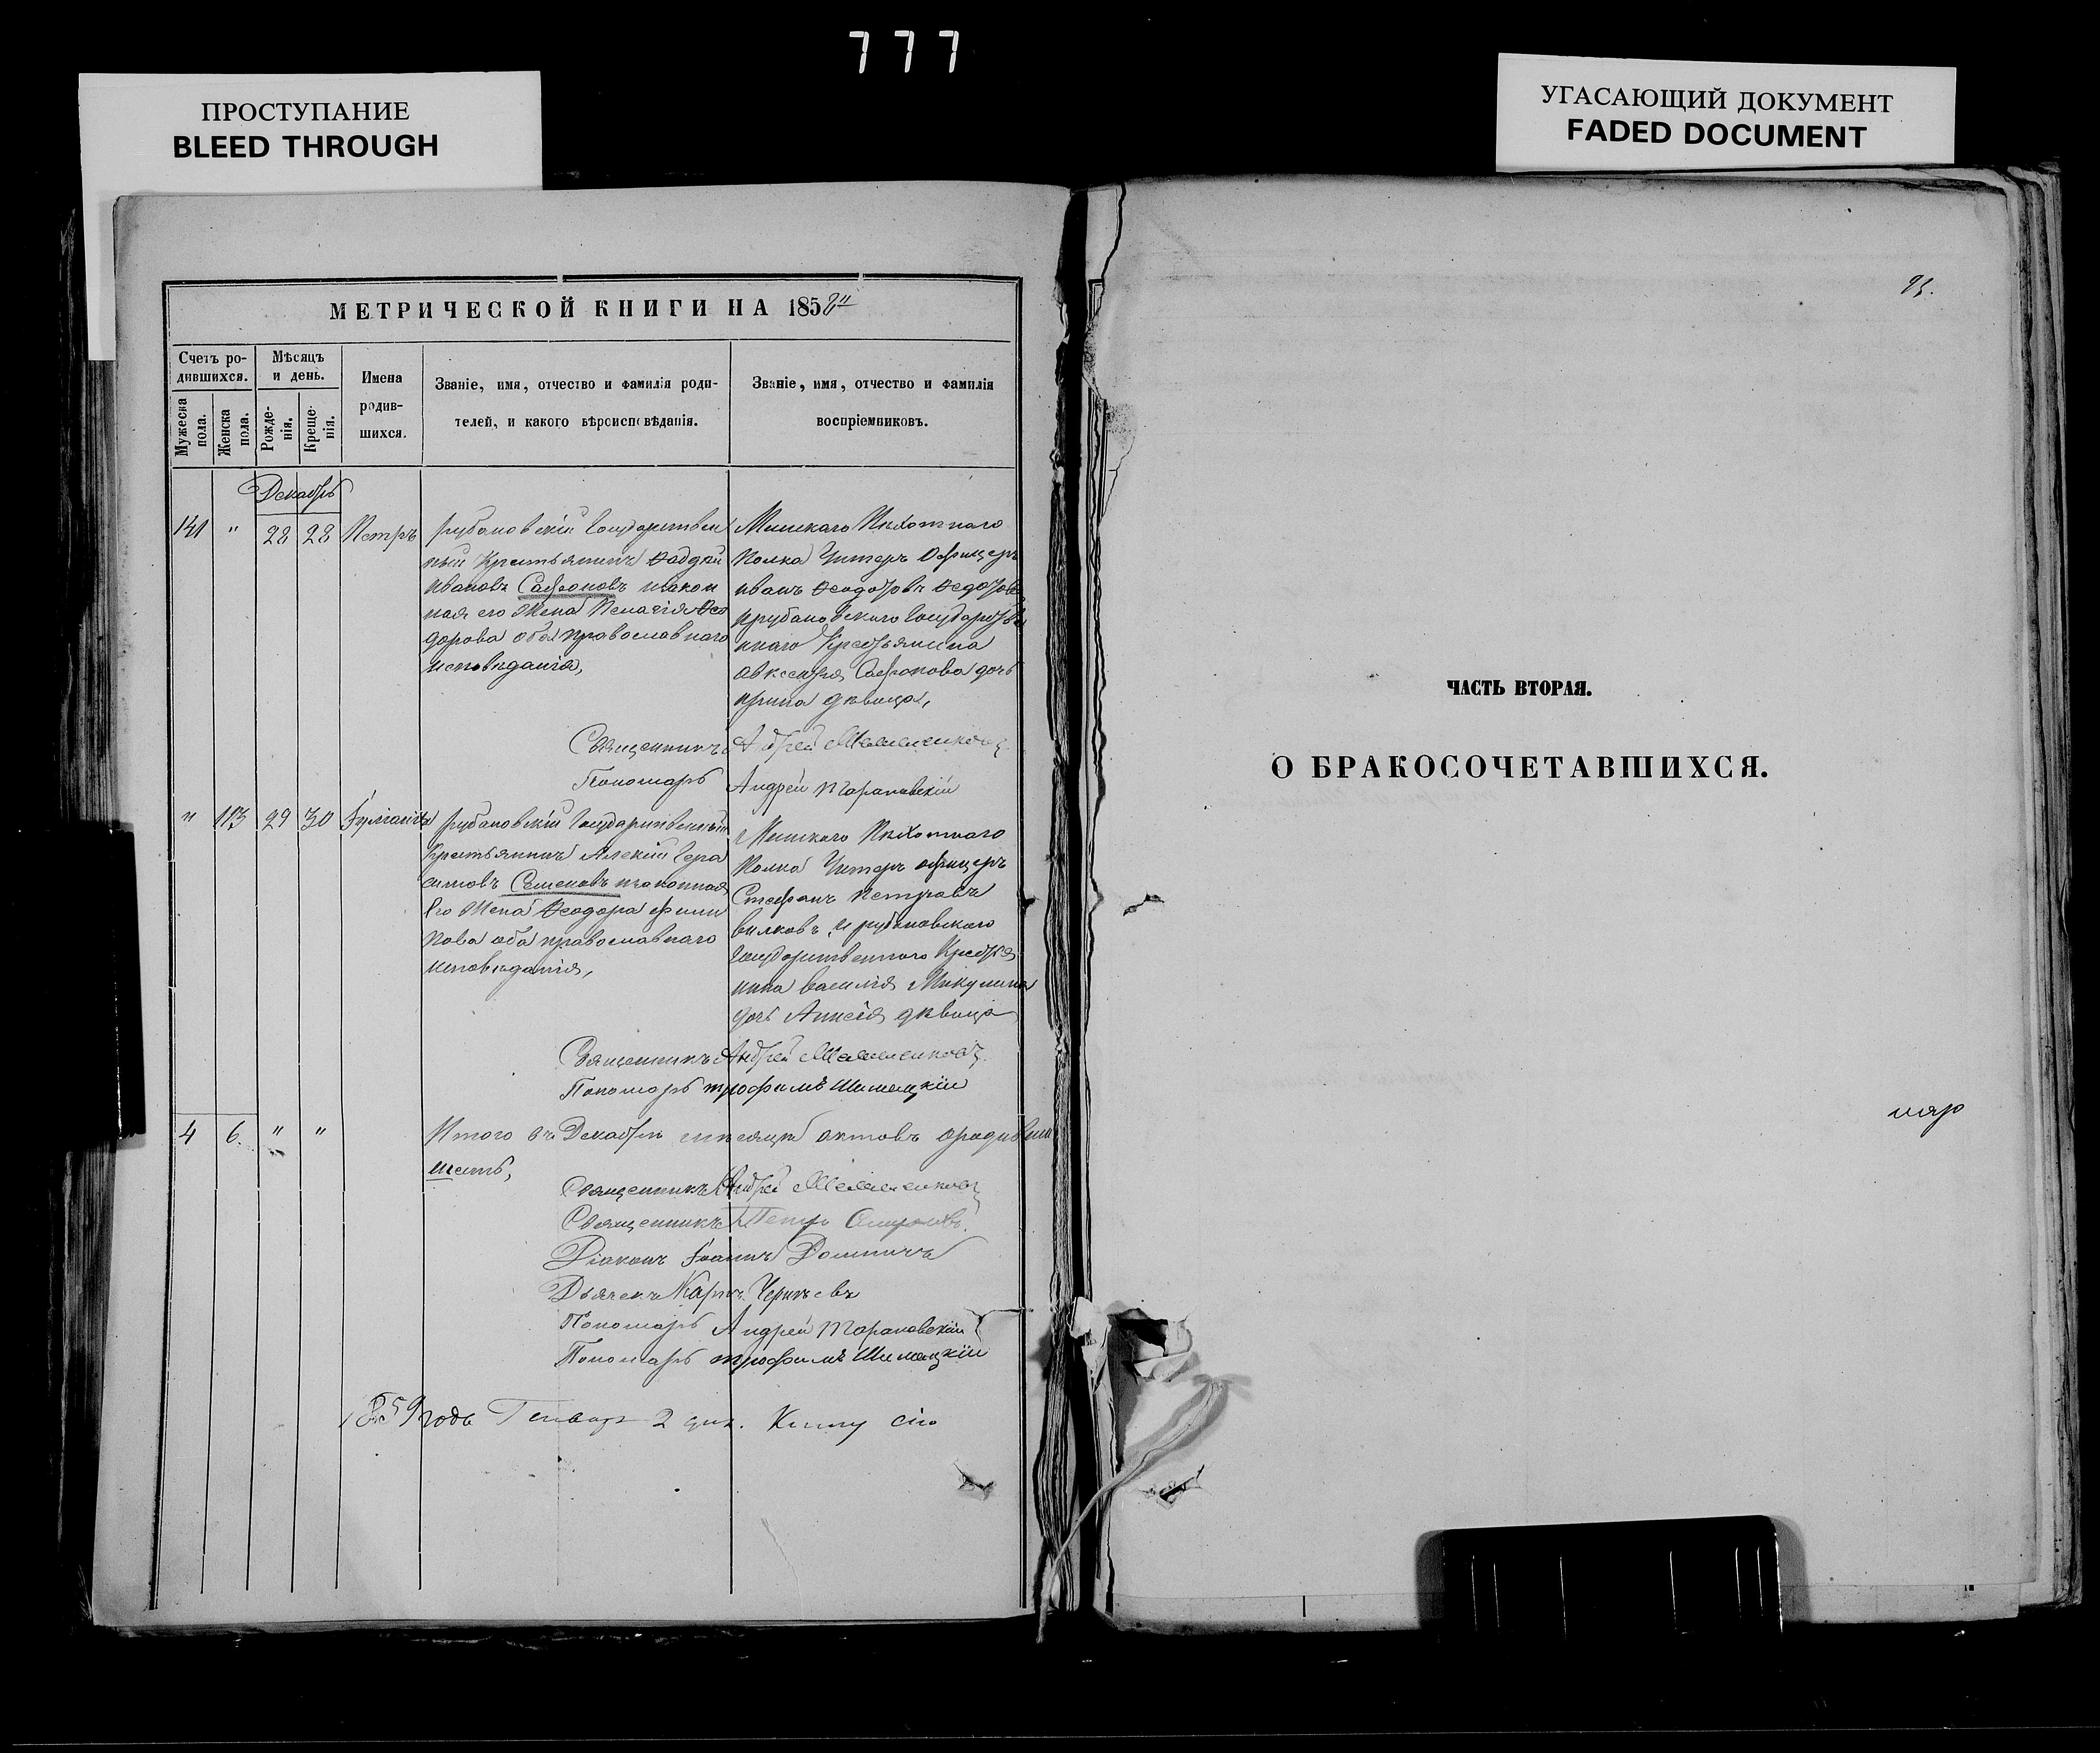 777
ПРОСТУПАНИЕ
BLEED THROUGH
УГАСАЮЩИЙ ДОКУМЕНТ
FADED DOCUMENT
МЕТРИЧЕСКОЙ КНИГИ НА 1858
Счетъ ро-
дившихся.
Мужеска
пола.
Женска
пола.
Мѣсяцъ
и день.
Рожде-
нія.
Креще-
нія.
Имена
родив-
шихся.
Званіе, имя, отчество и фамилія роди-
телей, и какого вѣроисповѣданія.
Званіе, имя, отчество и фамилія
воспріемниковъ.
Декабрь
141 " 28 28 Петръ
рубановскій Государствен
ный Крестьянинъ
ивановъ Сафроновъ изакон
ная его Жена Пелагія Ѳео
дорова оба православнаго
исповѣданія,
Минскаго Пѣхотнаго
Полка Унтеръ Офицеръ
иванъ
ирубановскаго Государстве
ннаго Крестьянина
авксентія Сафронова дочь
ирина дѣвица,
Священникъ Андрей
Пономарь Андрей Тарановскій
" 113 29 30 Іуліанія
рубановскій Государственный
Крестьянинъ Алексій Гера
симовъ Семеновъ изаконная
Его Жена Ѳеодора филип
пова оба православнаго
исповѣданія,
Минскаго Пѣхотнаго
Полка Унтеръ офицеръ
Стефанъ Петровъ
вилковъ, и рубановскаго
Государственнаго Крестья
нина василія Микулина
дочь Анисія дѣвица
Священникъ Андрей
Пономарь трофимъ Шимацкій
4 6. " "
Итого въ Декабрѣ мѣсяцѣ актовъ ородивши
шесть,
Священникъ Андрей
Священникъ Петръ
Діаконъ Іоаннъ
Дьячекъ Карпъ
Пономарь Андрей Тарановскій
Пономарь трофимъ Шимацкій
1859 года Генваря 2 дня. Книгу сію
ЧАСТЬ ВТОРАЯ.
О БРАКОСОЧЕТАВШИХСЯ.